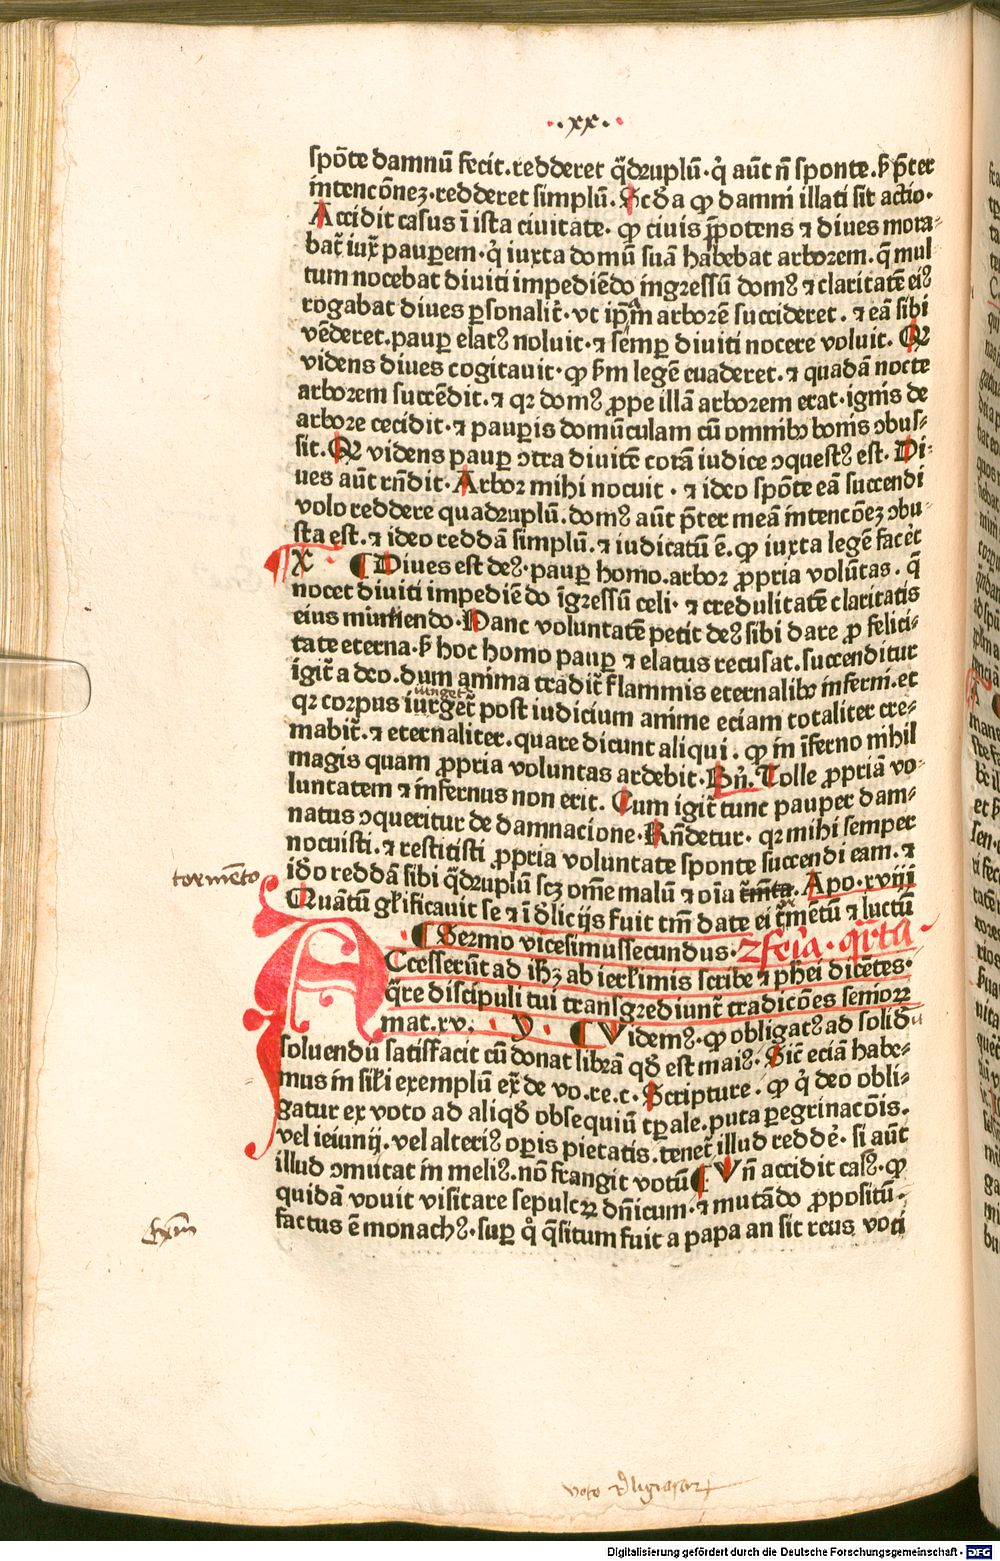 ..xx..
spōte damnū fecit. redderet q̄druplū. q̇ aūt n̄ sponte. ƀ p̄ter
intencōnez. redderet simplū. Scd̄a ꝙ damni illati sit actio.
Accidit casus ī ista ciuitate. ꝙ ciuis p̄potens ⁊ diues mora⸗
bat̄ iux̄ pauꝑem. q̇ iuxta domū suā habebat arborem. q̄ mul
tum nocebat diuiti impediēdo ingressū domꝰ ⁊ claritatē eiꝰ
rogabat diues ꝑsonalit̄. vt ip̄am arborē succideret. ⁊ eā sibi
vēderet. pauꝑ elatꝰ noluit. ⁊ semꝑ diuiti nocere voluit. Qꝛ
videns diues cogitauit. ꝙ ẜm legē euaderet. ⁊ quadā nocte
arborem succēdit. ⁊ qꝛ domꝰ ꝓpe illā arborem erat. ignis de
arbore cecidit. ⁊ pauꝑis domūculam cū omnibꝫ bonis ↄbus⸗
sit. Qꝛ videns pauꝑ ↄtra diuitē corā iudice ↄquestꝰ est. Di⸗
ues aūt rn̄dit. Arbor mihi nocuit. ⁊ ideo spōte eā succendi
volo reddere quadruplū. domꝰ aūt p̄ter meā intencōez ↄbu⸗
sta est. ⁊ ideo reddā simplū. ⁊ iudicatū ē. ꝙ iuxta legē facēt
¶ X ¶ Diues est deꝰ. pauꝑ homo. arbor ꝓpria volūtas. q̄
nocet diuiti impediēdo īgressū celi. ⁊ credulitatē claritatis
eius minuendo. Hanc voluntatē petit deꝰ sibi dare ꝓ felici⸗
tate eterna. ƀ hoc homo pauꝑ ⁊ elatus recusat. succenditur
igit̄ a deo. dum anima tradit̄ flammis eternalibꝫ inferni. et
iunget̄
qꝛ corpus iurget̄ post iudicium anime eciam totaliter cre⸗
mabit̄. ⁊ eternaliter. quare dicunt aliqui. ꝙ in īferno nihil
magis quam ꝓpria voluntas ardebit. Bn̄. Tolle ꝓpriā vo⸗
luntatem ⁊ infernus non erit. Cum igit̄ tunc pauper dam⸗
natus ↄqueritur de damnacione. Rn̄detur. qꝛ mihi semper
nocuisti. ⁊ restitisti ꝓpria voluntate sponte succendi eam. ⁊
tormēto
idō reddā sibi q̄druplū scꝫ om̄e malū ⁊ oīa t̄mta. Apo. xviij
Quātū gl̄ificauit se ⁊ ī d̄licijs fuit tm̄ date ei t̄mētū ⁊ luctū
¶ Sermo vicesimussecundus. 2 feria. qrta
Accesserūt ad ihꝫ ab ierl̄imis scribe ⁊ phēi dicētes.
q̄re discipuli tui transgrediunt̄ tradicōes seniorꝝ
mat. xv. y. ¶ Videmꝰ. ꝙ obligatꝰ ad solidū
soluendū satisfacit cū donat librā qđ est maiꝰ. Sic̄ eciā habe⸗
mus in sil̄i exemplū ex̄ de vo. re. c. Scripture. ꝙ q̇ deo obli⸗
gatur ex voto ad aliqđ obsequiū tꝑale. puta ꝑegrinacōis.
vel ieiunij. vel alteriꝰ oꝑis pietatis. tenet̄ illud redd̄e. si aūt
illud ↄmutat in meliꝰ. nō frangit votū ¶ Vn̄ accidit casꝰ. ꝙ
quidā vouit visitare sepulcꝝ dn̄icum. ⁊ mutādo ꝓpositū.
exm̄
factus ē monachꝰ. suꝑ q̊ q̄situm fuit a papa an sit reus voti
Digitalisierung gefördert durch die Deutsche Forschungsgemeinschaft - DFG